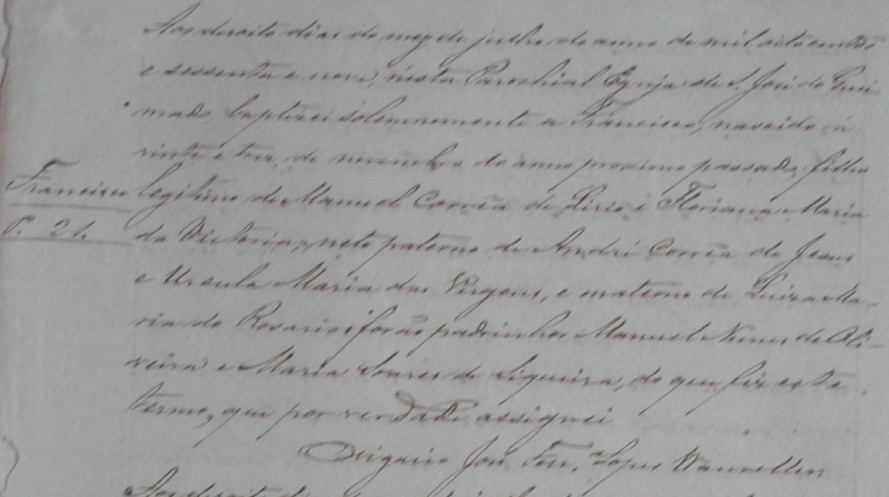 Aos desoito dias do mez de julho do anno de mil oito centos
e sessenta e nove, nesta Parochial Egreja de S. José do Quei-
mado, baptizei solemnemente a Francisco, nascido á
vinte e tres de novembro do anno proximo passado, filho
Francisco legitimo de Manuel Corrêa de Lirio e Floriana Maria
P. 21. da Victoria, neto paterno de André Corrêa de Jesus
e Ursula Maria das Virgens, e materno de Luiza Ma-
ria do Rosario: forão padrinhos Manuel Nunes de Oli-
veira e Maria Soares de Siqueira, do que fiz este
termo, que por verdade assignei
O Vigario José Lopes Wanzeller
Aos desoito